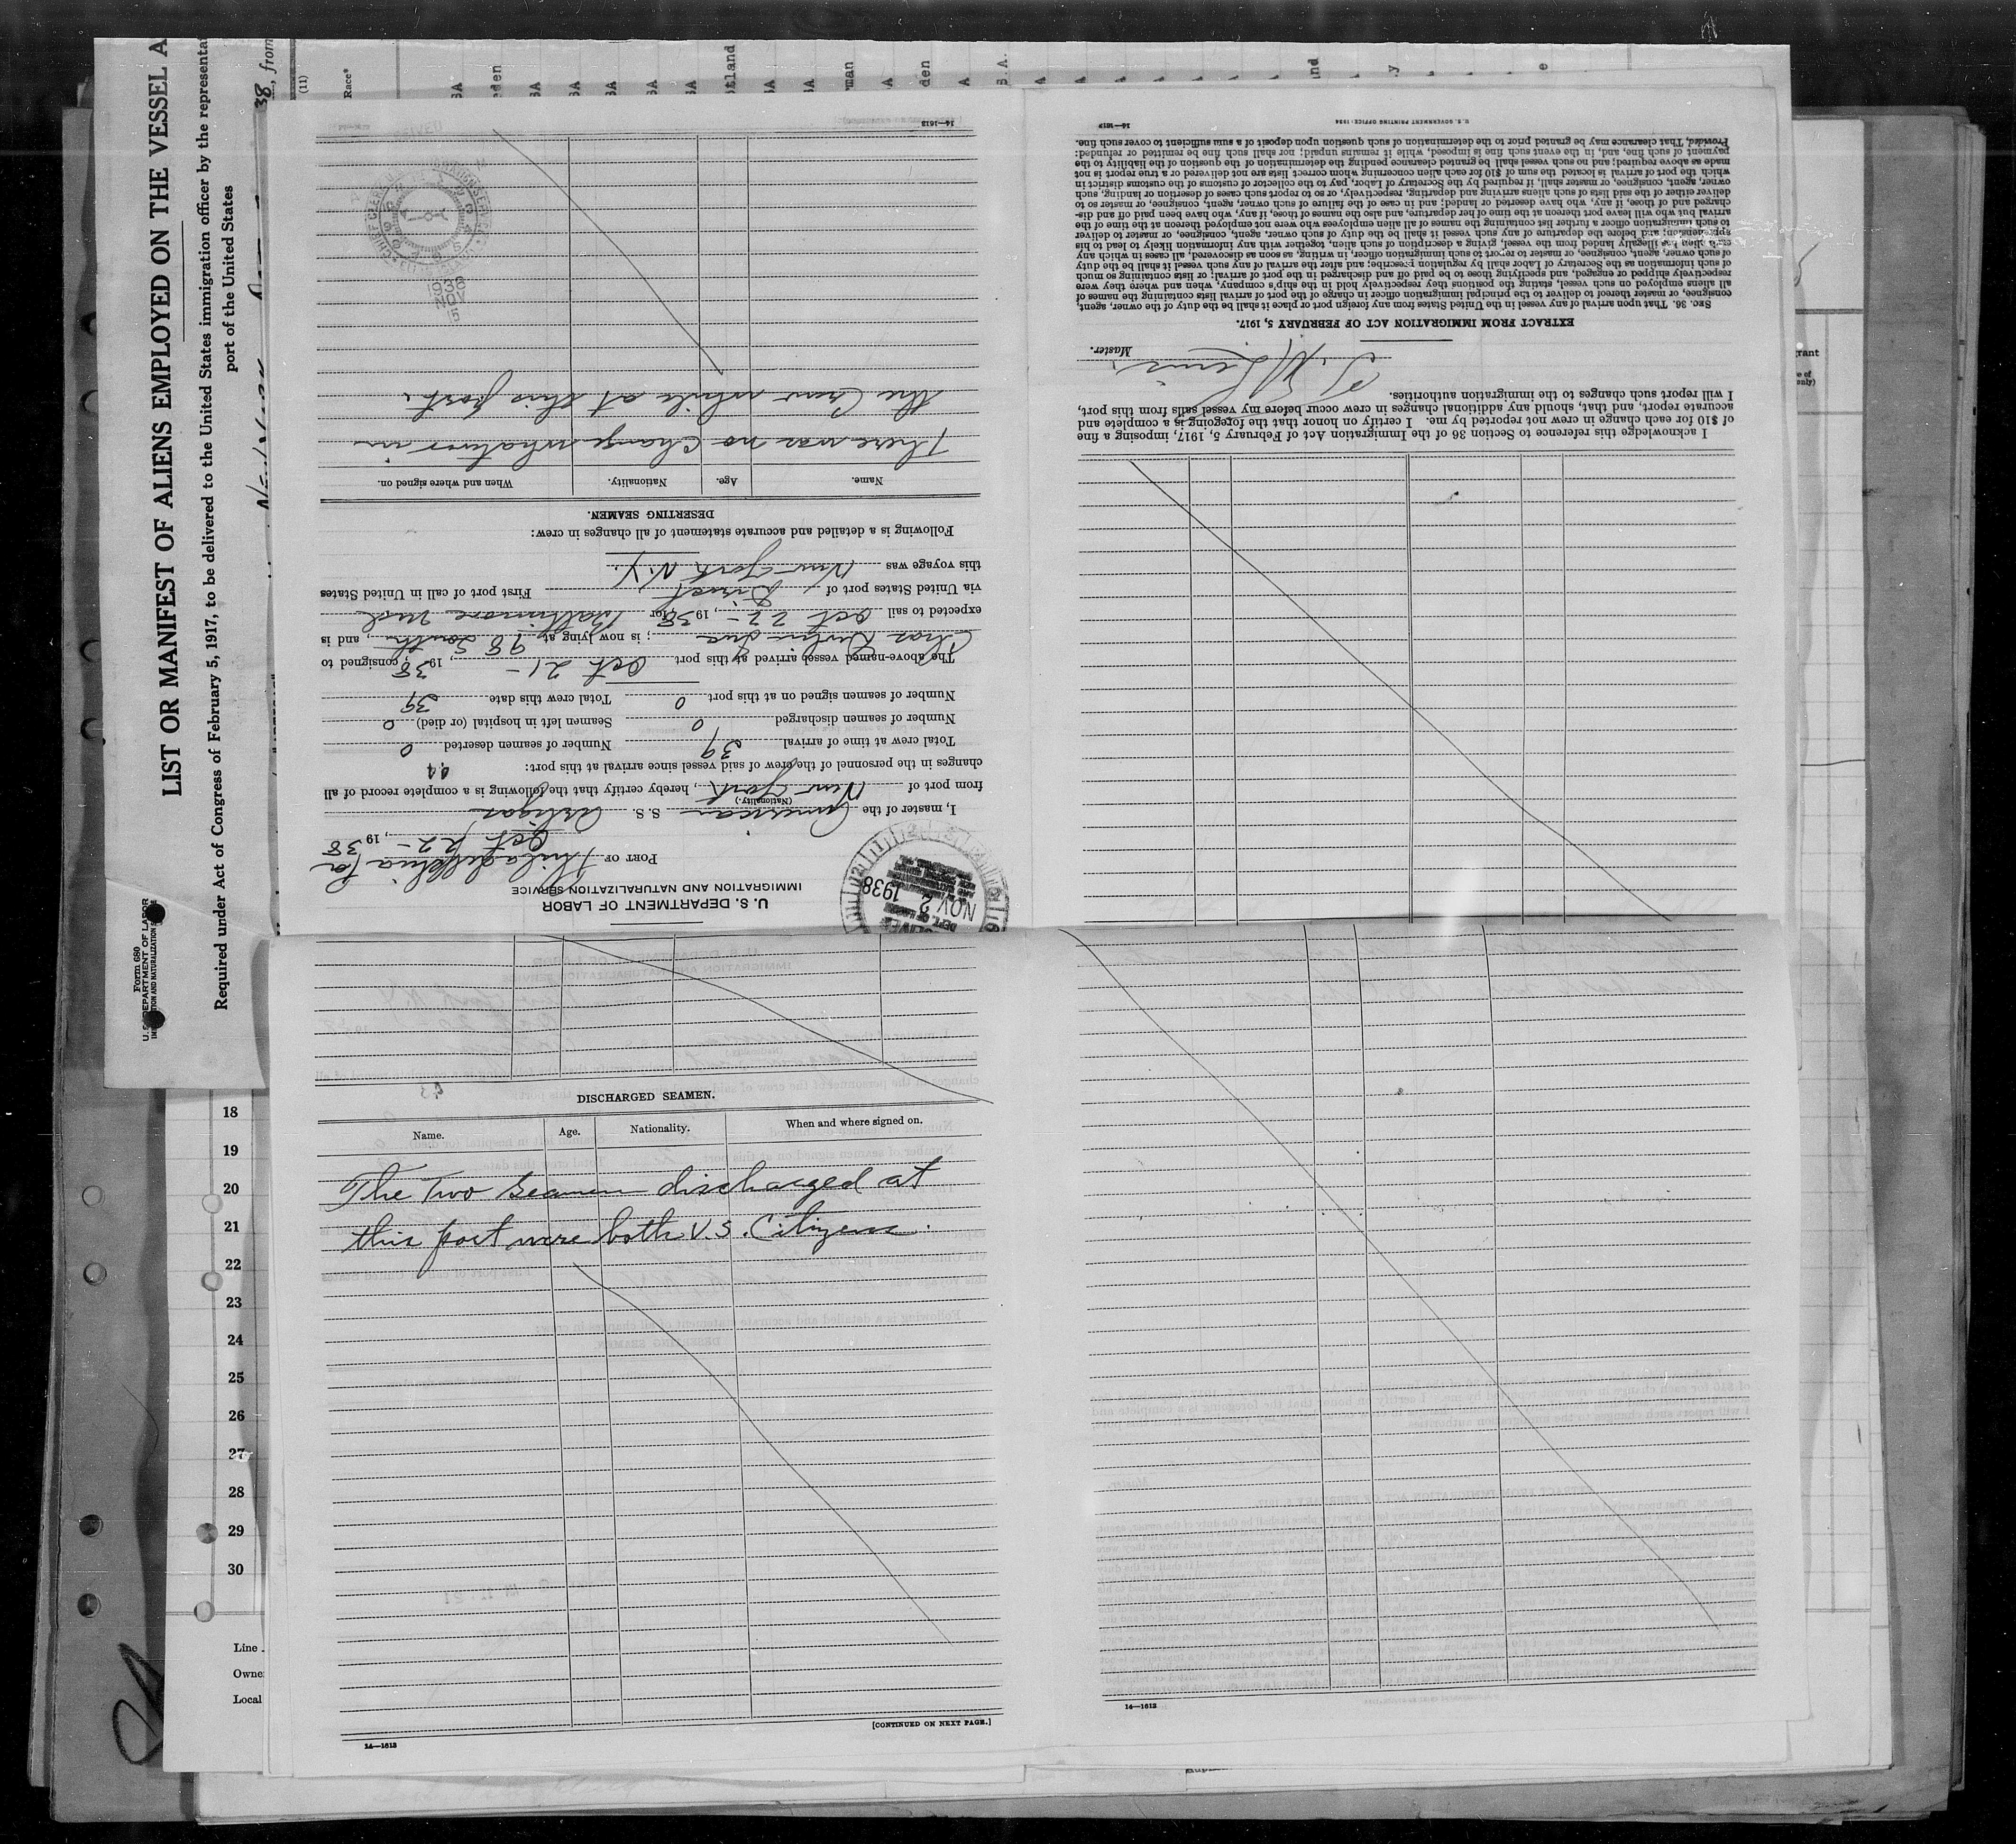 LIST OR MANIFEST OF ALIENS EMPLOYED ON THE VESSEL A
Required under Act of Congress of February 5, 1917, to be delivered to the United States immigration officer by the representa
port of the United States
Form 680
U. S. DEPARTMENT OF LABOR
IMMIGRATION AND NATURALIZATION
38, from
(1)
Race*
U. S. DEPARTMENT OF LABOR
IMMIGRATION AND NATURALIZATION SERVICE
PORT OF Philadelphia Pa
Oct 22 -, 1938
I, master of the American S. S. Artigas
(Nationality.)
from port of New York, hereby certify that the following is a complete record of all
changes in the personnel of the crew of said vessel since arrival at this port:
Total crew at time of arrival 39 Number of seamen deserted 0
Number of seamen discharged 0 Seamen left in hospital (or died) 0
Number of seamen signed on at this port 0 Total crew this date 39
The above-named vessel arrived at this port Oct 21 -, 1938, consigned to
Chas Kurz Inc; is now lying at 98 South, and is
expected to sail Oct 22 -, 1938 for Baltimore Md
via United States port of Direct First port of call in United States
this voyage was New York N.Y.
Following is a detailed and accurate statement of all changes in crew:
DESERTING SEAMEN.
Name. Age. Nationality. When and where signed on.
There was no change whatever in
the Crew while at this port.
1938
NOV
14—1613
NOV 2 1938
I acknowledge this reference to Section 36 of the Immigration Act of February 5, 1917, imposing a fine
of $10 for each change in crew not reported by me. I certify on honor that the foregoing is a complete and
accurate report, and that, should any additional changes in crew occur before my vessel sails from this port,
I will report such changes to the immigration authorities.
Master.
EXTRACT FROM IMMIGRATION ACT OF FEBRUARY 5, 1917.
SEC. 36. That upon arrival of any vessel in the United States from any foreign port or place it shall be the duty of the owner, agent,
consignee, or master thereof to deliver to the principal immigration officer in charge of the port of arrival lists containing the names of
all aliens employed on such vessel, stating the positions they respectively hold in the ship's company, when and where they were
respectively shipped or engaged, and specifying those to be paid off and discharged in the port of arrival; or lists containing so much
of such information as the Secretary of Labor shall by regulation prescribe; and after the arrival of any such vessel it shall be the duty
of such owner, agent, consignee, or master to report to such immigration officer, in writing, as soon as discovered, all cases in which any
such alien has illegally landed from the vessel, giving a description of such alien, together with any information likely to lead to his
apprehension; and before the departure of any such vessel it shall be the duty of such owner, agent, consignee, or master to deliver
to such immigration officer a further list containing the names of all alien employees who were not employed thereon at the time of the
arrival but who will leave port thereon at the time of her departure, and also the names of those, if any, who have been paid off and dis-
charged and of those, if any, who have deserted or landed; and in case of the failure of such owner, agent, consignee, or master so to
deliver either of the said lists of such aliens arriving and departing, respectively, or so to report such cases of desertion or landing, such
owner, agent, consignee, or master shall, if required by the Secretary of Labor, pay to the collector of customs of the customs district in
which the port of arrival is located the sum of $10 for each alien concerning whom correct lists are not delivered or a true report is not
made as above required; and no such vessel shall be granted clearance pending the determination of the question of the liability to the
payment of such fine, and, in the event such fine is imposed, while it remains unpaid; nor shall such fine be remitted or refunded:
Provided, That clearance may be granted prior to the determination of such question upon deposit of a sum sufficient to cover such fine.
U. S. GOVERNMENT PRINTING OFFICE: 1934
14—1613
DISCHARGED SEAMEN.
Name. Age. Nationality. When and where signed on.
The Two Seamen discharged at
this port were both U.S. Citizens.
[CONTINUED ON NEXT PAGE.]
14—1613
14—1613
18
19
20
21
22
23
24
25
26
27
28
29
30
Line
Owne
Local